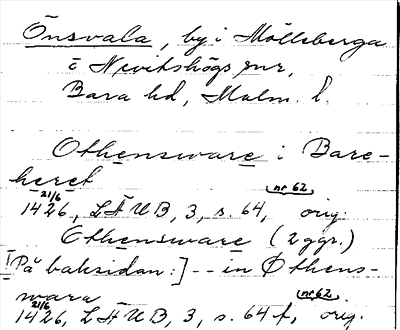 Önsvala, by i Mölleberga
i Nevitshögs snr,
Bara hd, Malm. l.
Othensware i Bare-
heret
21/6 nr 62
1426, LÄUB, 3, s. 64, orig.
Othensware (2 ggr.)
[På baksidan:] -- in Othens-
wara
21/6 nr 62
1426, LÄUB, 3, s. 64 f, orig.